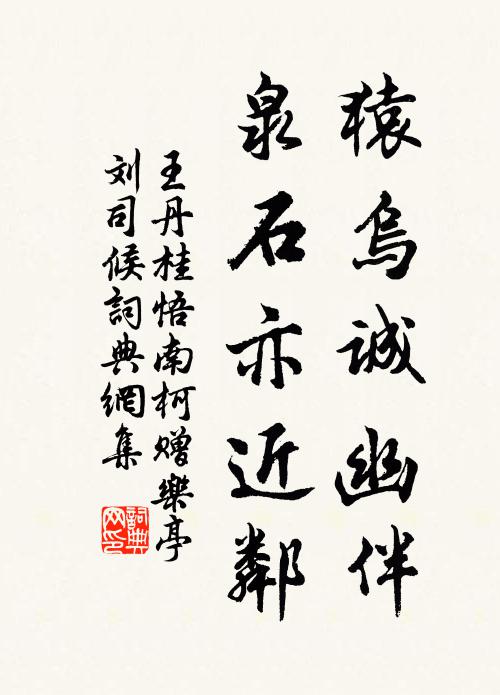 猿鸟誠幽伴
泉石亦近鄰
王丹桂悟南柯赠樂亭
刘司候詞典網集
詞典
网印